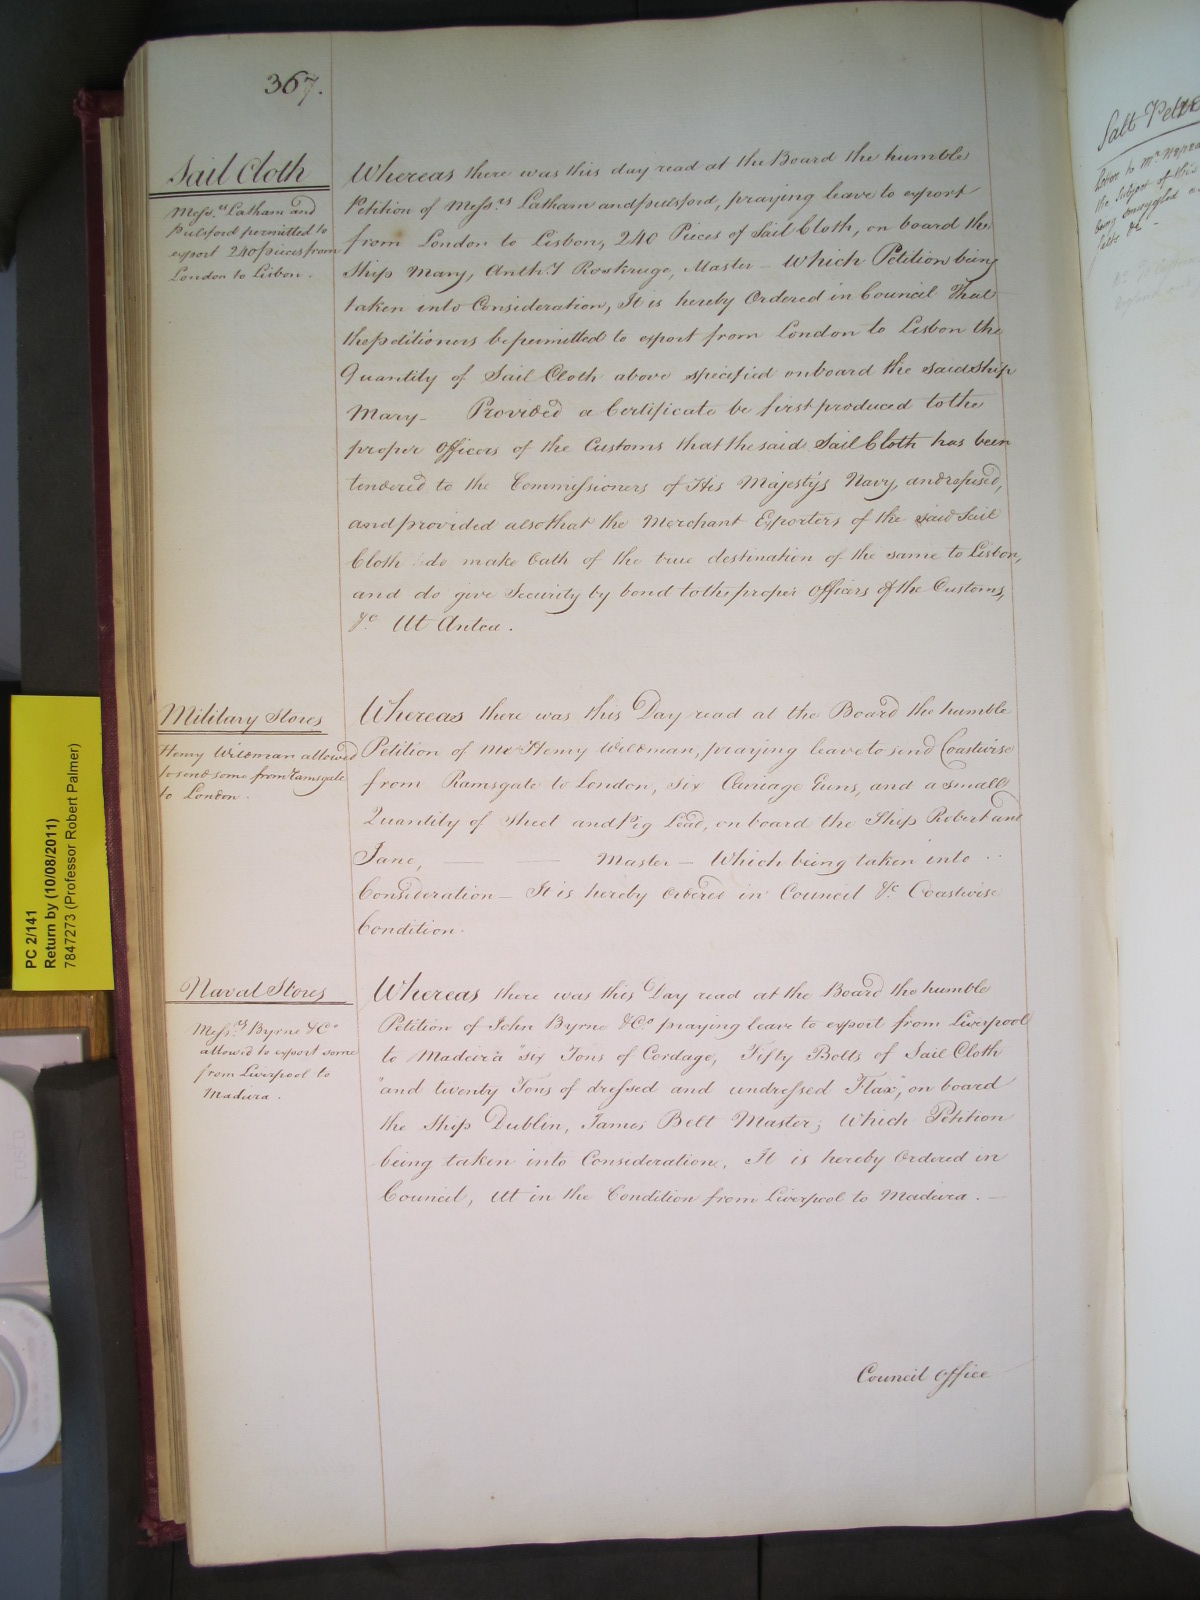 367.
Sail Cloth
Mess.rs Latham and
Pulsford permitted to
export 240 pieces from
London to Lisbon.
Whereas there was this day read at the Board the humble
Petition of Mess.rs Latham and pulsford, praying leave to export
from London to Lisbon, 240 Pieces of Sail Cloth, on board the
Ship Mary, Anth.y Roskruge, Master – Which Petition being
taken into Consideration, It is hereby Ordered in Council That
the petitioners be permitted to export from London to Lisbon the
Quantity of Sail Cloth above specified on board the said ship
Mary – Provided a Certificate be first produced to the
proper Officers of the Customs that the said Sail Cloth has been
tendered to the Commissioners of His Majesty's Navy, and refused,
and provided also that the Merchant Exporters of the said Sail
Cloth do make Oath of the true destination of the same to Lisbon,
and do give Security by bond to the proper Officers of the Customs,
&c Ut Antea.
Military Stores
Henry Wildman allowed
to send some from Ramsgate
to London.
Whereas there was this Day read at the Board the humble
Petition of Mr Henry Wildman, praying leave to send Coastwise
from Ramsgate to London, six Carriage Guns, and a small
Quantity of Sheet and Pig Lead, on board the Ship Robert and
Jane, ——— ——— Master – Which being taken into
Consideration – It is hereby Ordered in Council &c Coastwise
Condition.
Naval Stores
Mess.rs Byrne & Co
allow'd to export some
from Liverpool to
Madeira.
Whereas there was this Day read at the Board the humble
Petition of John Byrne & Co praying leave to export from Liverpool
to Madeira "six Tons of Cordage, Fifty Bolts of Sail Cloth
"and twenty Tons of dressed and undressed Flax", on board
the Ship Dublin, James Belt Master; Which Petition
being taken into Consideration, It is hereby Ordered in
Council, Ut in the Condition from Liverpool to Madeira. –
Council Office
Salt Petre
Letter to Mr.
the subject of this
being smuggled
PC 2/141
Return by (10/08/2011)
7847273 (Professor Robert Palmer)